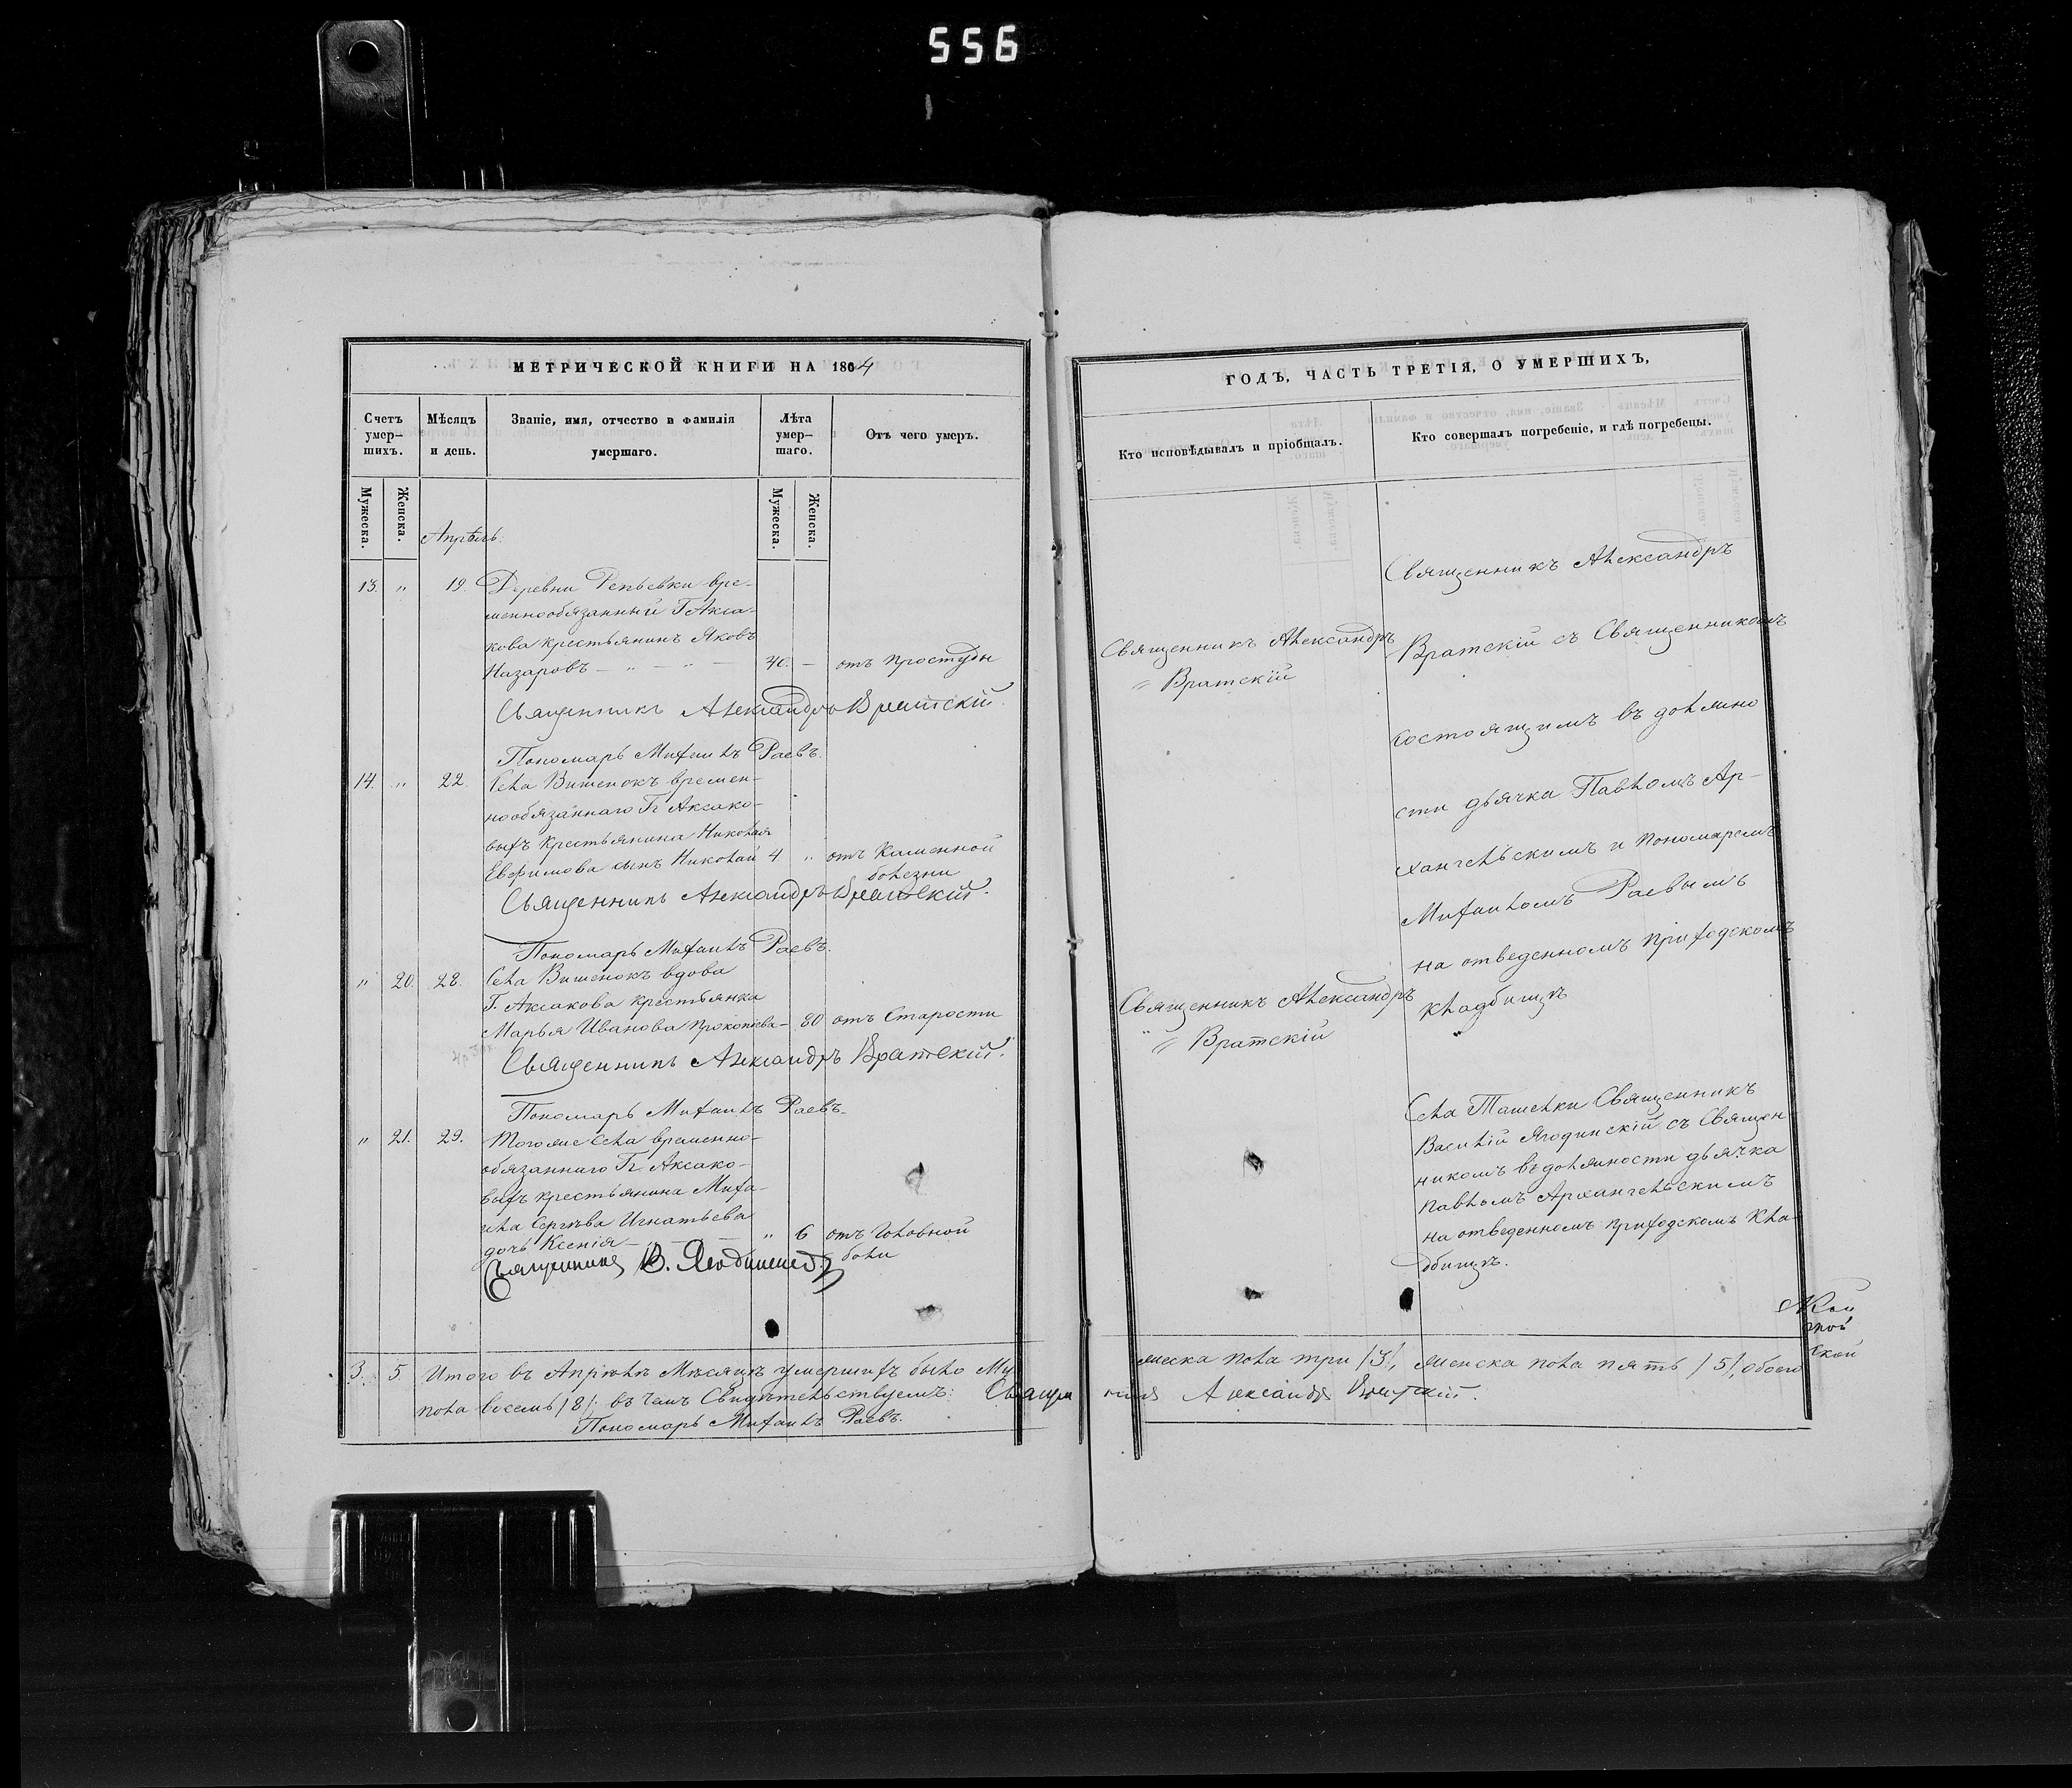 556
МЕТРИЧЕСКОЙ КНИГИ НА 1864
Счетъ умер-шихъ.
Мѣсяцъ и день.
Званіе, имя, отчество и фамилія умершаго.
Лѣта умер-шаго.
Отъ чего умеръ.
Мужеска.
Женска.
Мужеска.
Женска.
Апрѣль.
13. " 19. Деревни Репьевки вре-
меннообязанный Г. Акса-
кова крестьянинъ Яковъ
Назаровъ — " — " — 40. — отъ простуды
Священникъ Александръ Братскій.
Пономарь Михаилъ Раевъ.
14. " 22. Села Вишенокъ времен-
нообязаннаго Гг. Аксако-
выхъ крестьянина Николая
Евфимова сынъ Николай 4 " отъ Каменной
болезни
Священникъ Александръ Братскій.
Пономарь Михаилъ Раевъ.
" 20. 28. Села Вишенокъ вдова
Г. Аксакова крестьянка
Марья Иванова Прокопіева — 80 отъ Старости
Священникъ Александръ Братскій.
Пономарь Михаилъ Раевъ.
" 21. 29. Тогоже Села временно-
обязаннаго Гг. Аксако-
выхъ крестьянина Миха-
ила Сергѣва Игнатьева
дочь Ксенія — — — " 6 отъ Головной
боли
Священникъ В. Ягодинскій
3. 5. Итого въ Апрѣлѣ Мѣсяцѣ умершихъ было Му
пола восемь /8/; въ чемъ Свидѣтельствуемъ: Священ
Пономарь Михаилъ Раевъ.
ГОДЪ, ЧАСТЬ ТРЕТІЯ, О УМЕРШИХЪ,
Кто исповѣдывалъ и пріобщалъ.
Кто совершалъ погребеніе, и гдѣ погребены.
Священникъ Александръ
Братскій
Священникъ Александръ
Братскій съ Священникомъ
состоящимъ въ должно
сти дьячка Павломъ Ар-
хангельскимъ и пономаремъ
Михаиломъ Раевымъ
на отведенномъ приходскомъ
кладбищѣ
Священникъ Александръ
" Братскій
"
Села Ташелки Священникъ
Василій Ягодинскій съ Священ
никомъ въ должности дьячка
Павломъ Архангельскимъ
на отведенномъ приходскомъ Кла-
дбищѣ.
жеска пола три /3/, женска пола пять /5/, обоего
никъ Александръ Братскій.